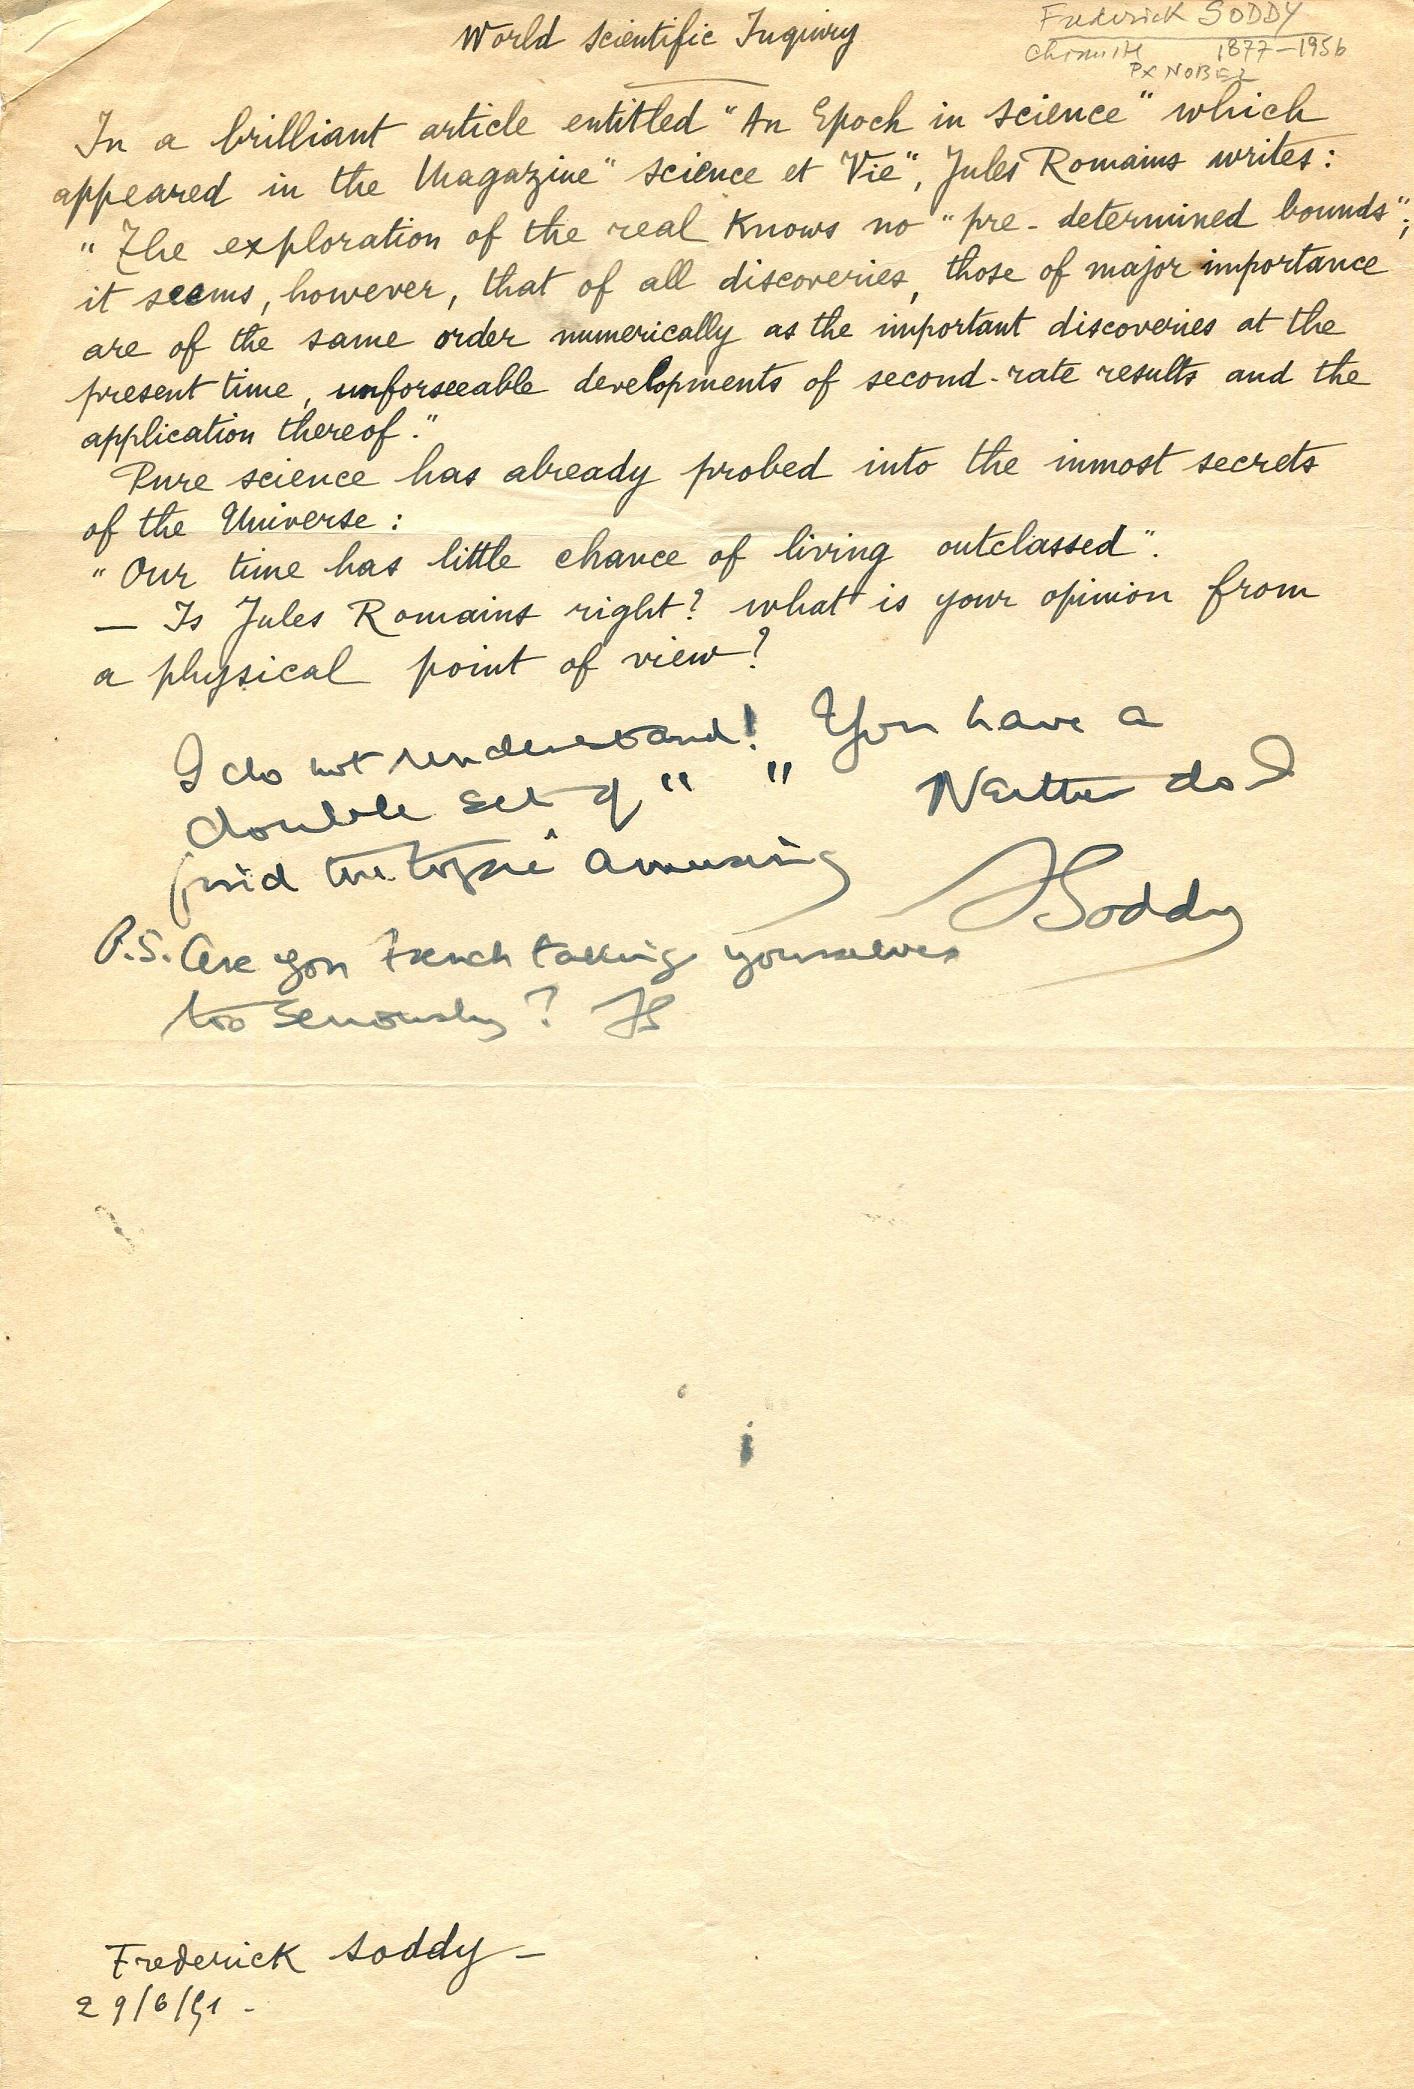 World scientific Inquiry
Frederick SODDY
Chimiste 1877-1956
PX NOBEL
In a brilliant article entitled "An Epoch in science" which
appeared in the Magazine "science et Vie", Jules Romains writes:
"The exploration of the real Knows no "pre-determined bounds";
it seems, however, that of all discoveries, those of major importance
are of the same order numerically as the important discoveries at the
present time, unforseeable developments of second-rate results and the
application thereof."
Pure science has already probed into the inmost secrets
of the Universe:
"Our time has little chance of living outclassed".
— Is Jules Romains right? what is your opinion from
a physical point of view?
I do not understand! You have a
double set of " " Neither do I
find the topic amusing
FSoddy
P.S. Are you French taking yourselves
too seriously? FS
Frederick soddy -
29/6/51 -